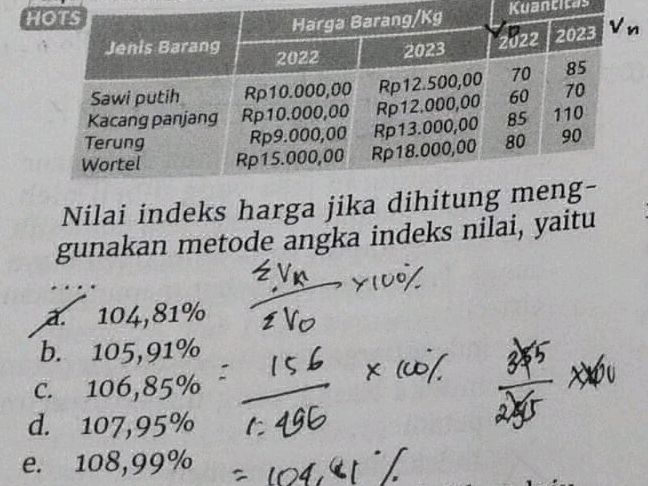 HOTS
Jenis Barang Harga Barang/Kg Kuantitas
2022 2023 2022 2023 Vn
Sawi putih Rp10.000,00 Rp12.500,00 70 85
Kacang panjang Rp10.000,00 Rp12.000,00 60 70
Terung Rp9.000,00 Rp13.000,00 85 110
Wortel Rp15.000,00 Rp18.000,00 80 90
Nilai indeks harga jika dihitung meng-
gunakan metode angka indeks nilai, yaitu
....
ΣVn
ΣVo
×100%
a. 104,81%
b. 105,91%
c. 106,85%
d. 107,95%
e. 108,99%
= 156 × 100%
= 104,81%